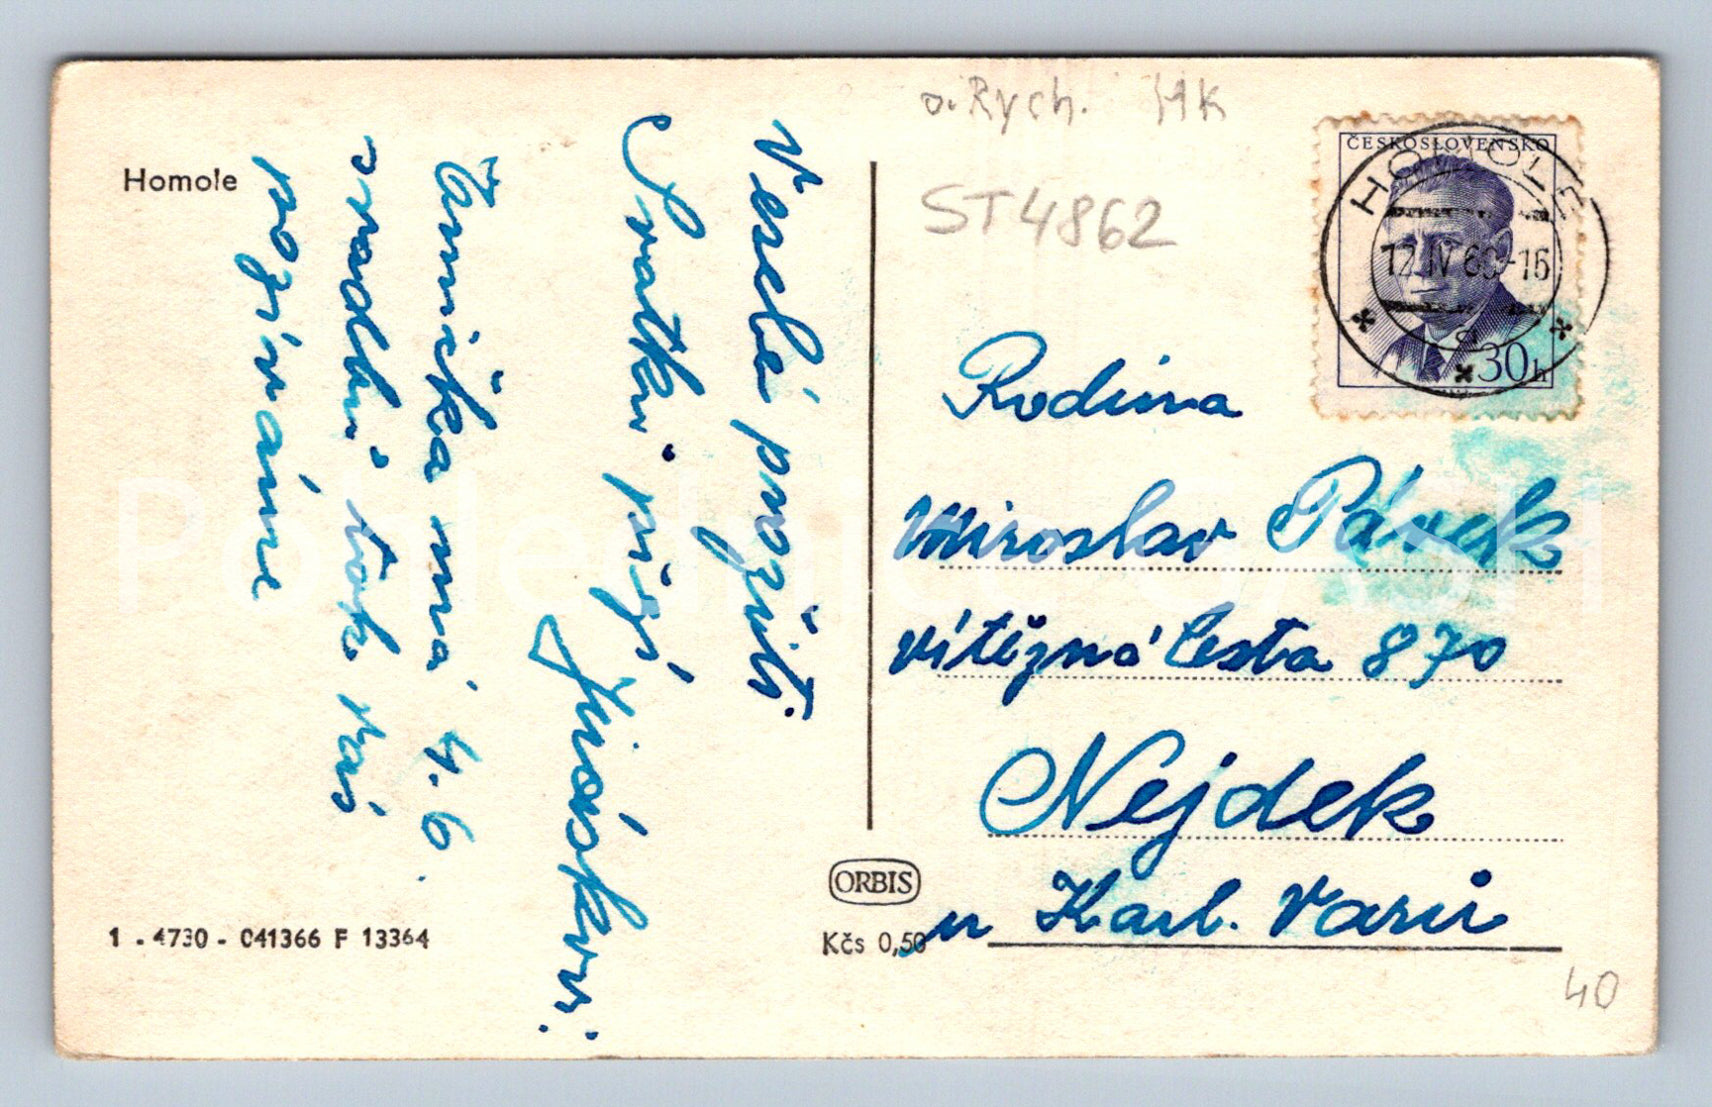 Homole
Veselé prožití
Svátků přejí
Jiráskovi.
Anička má 4.6.
svadbu tak vás
pozýváme
1 - 4730 - 041366 F 13364
ORBIS
Kčs 0,50
o. Rych. HK
ST4862
ČESKOSLOVENSKO
30h
HOMOLE
12.IV.60-16
a
Rodina
Miroslav Pávek
Vítězná Cesta 870
Nejdek
u Karl. Varů
40
Pohlednice CASH